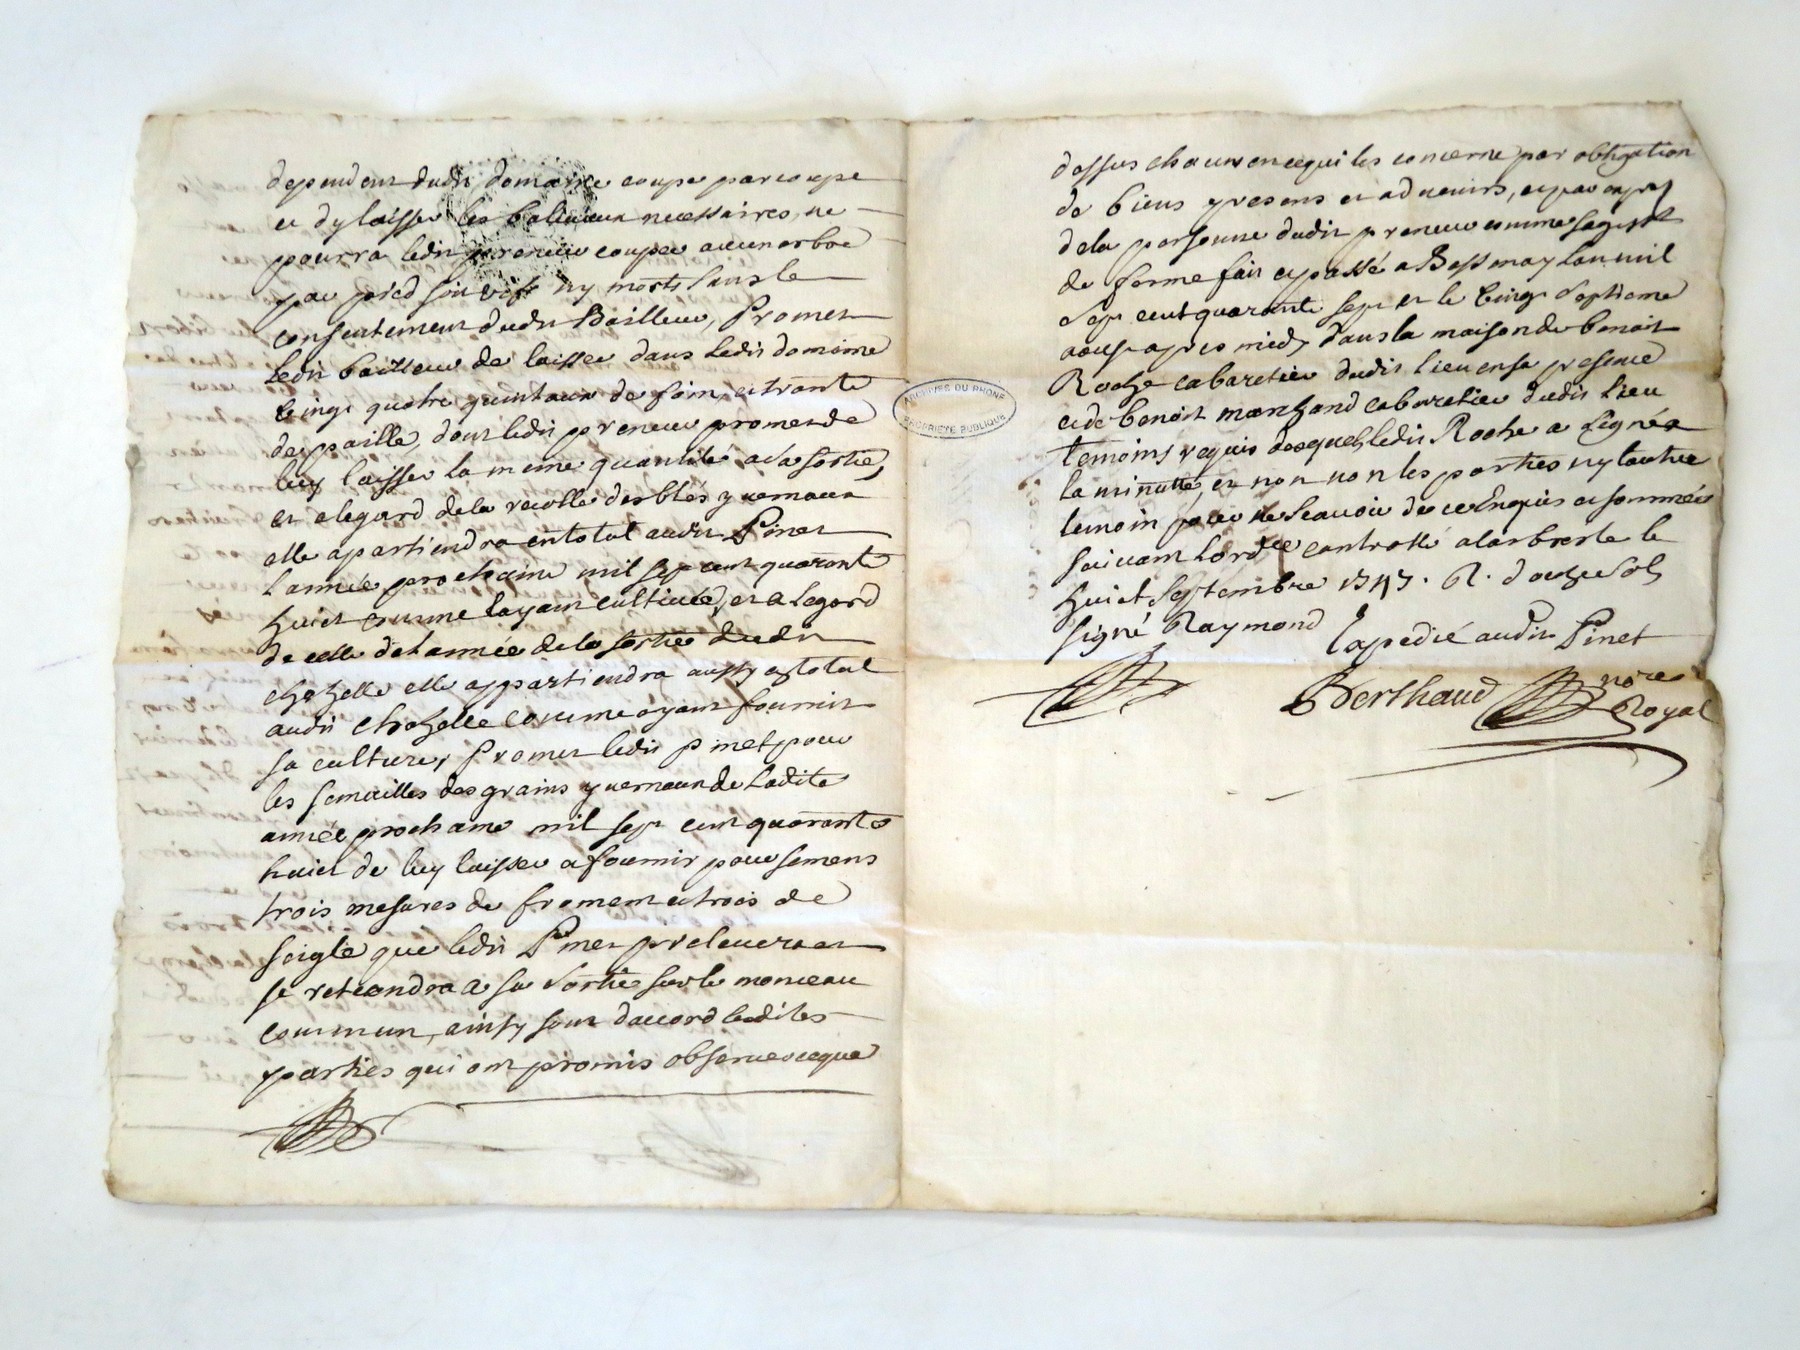 dependent dudit domaine coupe par coupe
et dy laisser les baliveaux necessaires, ne
pourra ledit preneur couper aucun arbre
par pied soit vifs ny morts sans le
consentement dudit Bailleur, Promet
ledit bailleur de laisser dans ledit domaine
vingt quatre quintaux de foin et trante
de paille, dont ledit preneur promet de
luy laisser la meme quantité a sa sortie,
et a legard de la recolte des blés yvernaux
elle apartiendra en total audit Pinet
lannée prochaine mil sept cent quarante
huict comme layant cultivée, et a legard
de celle de lannée de la sortie dudit
chazelle elle appartiendra aussy en total
audit Chazelle comme ayant fournit
sa culture, Promet ledit pinet pour
les semailles des grains yvernaux de ladite
année prochaine mil sept cent quarante
huict de luy laisser a fournir pour semens
trois mesures de froment et trois de
seigle que ledit Pinet prelevera et
se retiendra a sa sortie sur le monceau
commun, ainsy sont daccord lesdites
parties qui ont promis observer ce que
ARCHIVES DU RHONE
PROPRIETE PUBLIQUE
dessus chacun en ce qui les concerne par obligation
de biens presens et advenirs, et par exprés
de la personne dudit preneur comme sagissant
de ferme fait et passé a Bessenay lan mil
sept cent quarante sept et le vingt septieme
aoust apres midy dans la maison de benoit
Roche cabaretier dudit lieu en sa presence
et de benoit marchand cabaretier dudit lieu
temoins requis desquels ledit Roche a signée
la minutte, et non non les parties ny lautre
temoin pour ne scavoir de ce Enquis et sommée
suivant lordce controllé a larbresle le
huict septembre 1747. R. douze sols
signé Raymond Expedié audit Pinet
Berthaud nore
Royal